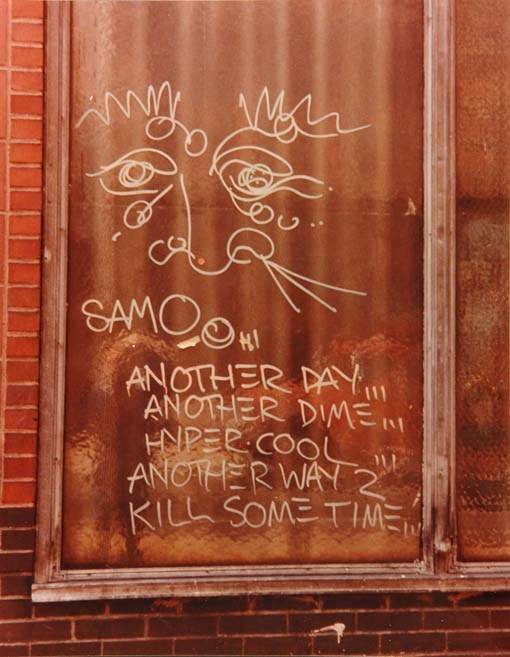 SAMO© HI
ANOTHER DAY,,,
ANOTHER DIME,,,
HYPER-COOL ,,,
ANOTHER WAY 2
KILL SOME TIME,,,